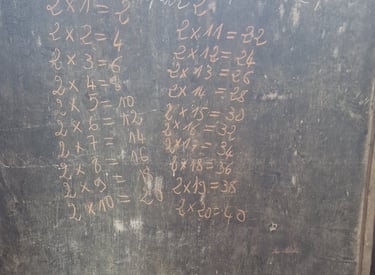 2 × 1 = 2
2 × 2 = 4
2 × 3 = 6
2 × 4 = 8
2 × 5 = 10
2 × 6 = 12
2 × 7 = 14
2 × 8 = 16
2 × 9 = 18
2 × 10 = 20
2 × 11 = 22
2 × 12 = 24
2 × 13 = 26
2 × 14 = 28
2 × 15 = 30
2 × 16 = 32
2 × 17 = 34
2 × 18 = 36
2 × 19 = 38
2 × 20 = 40